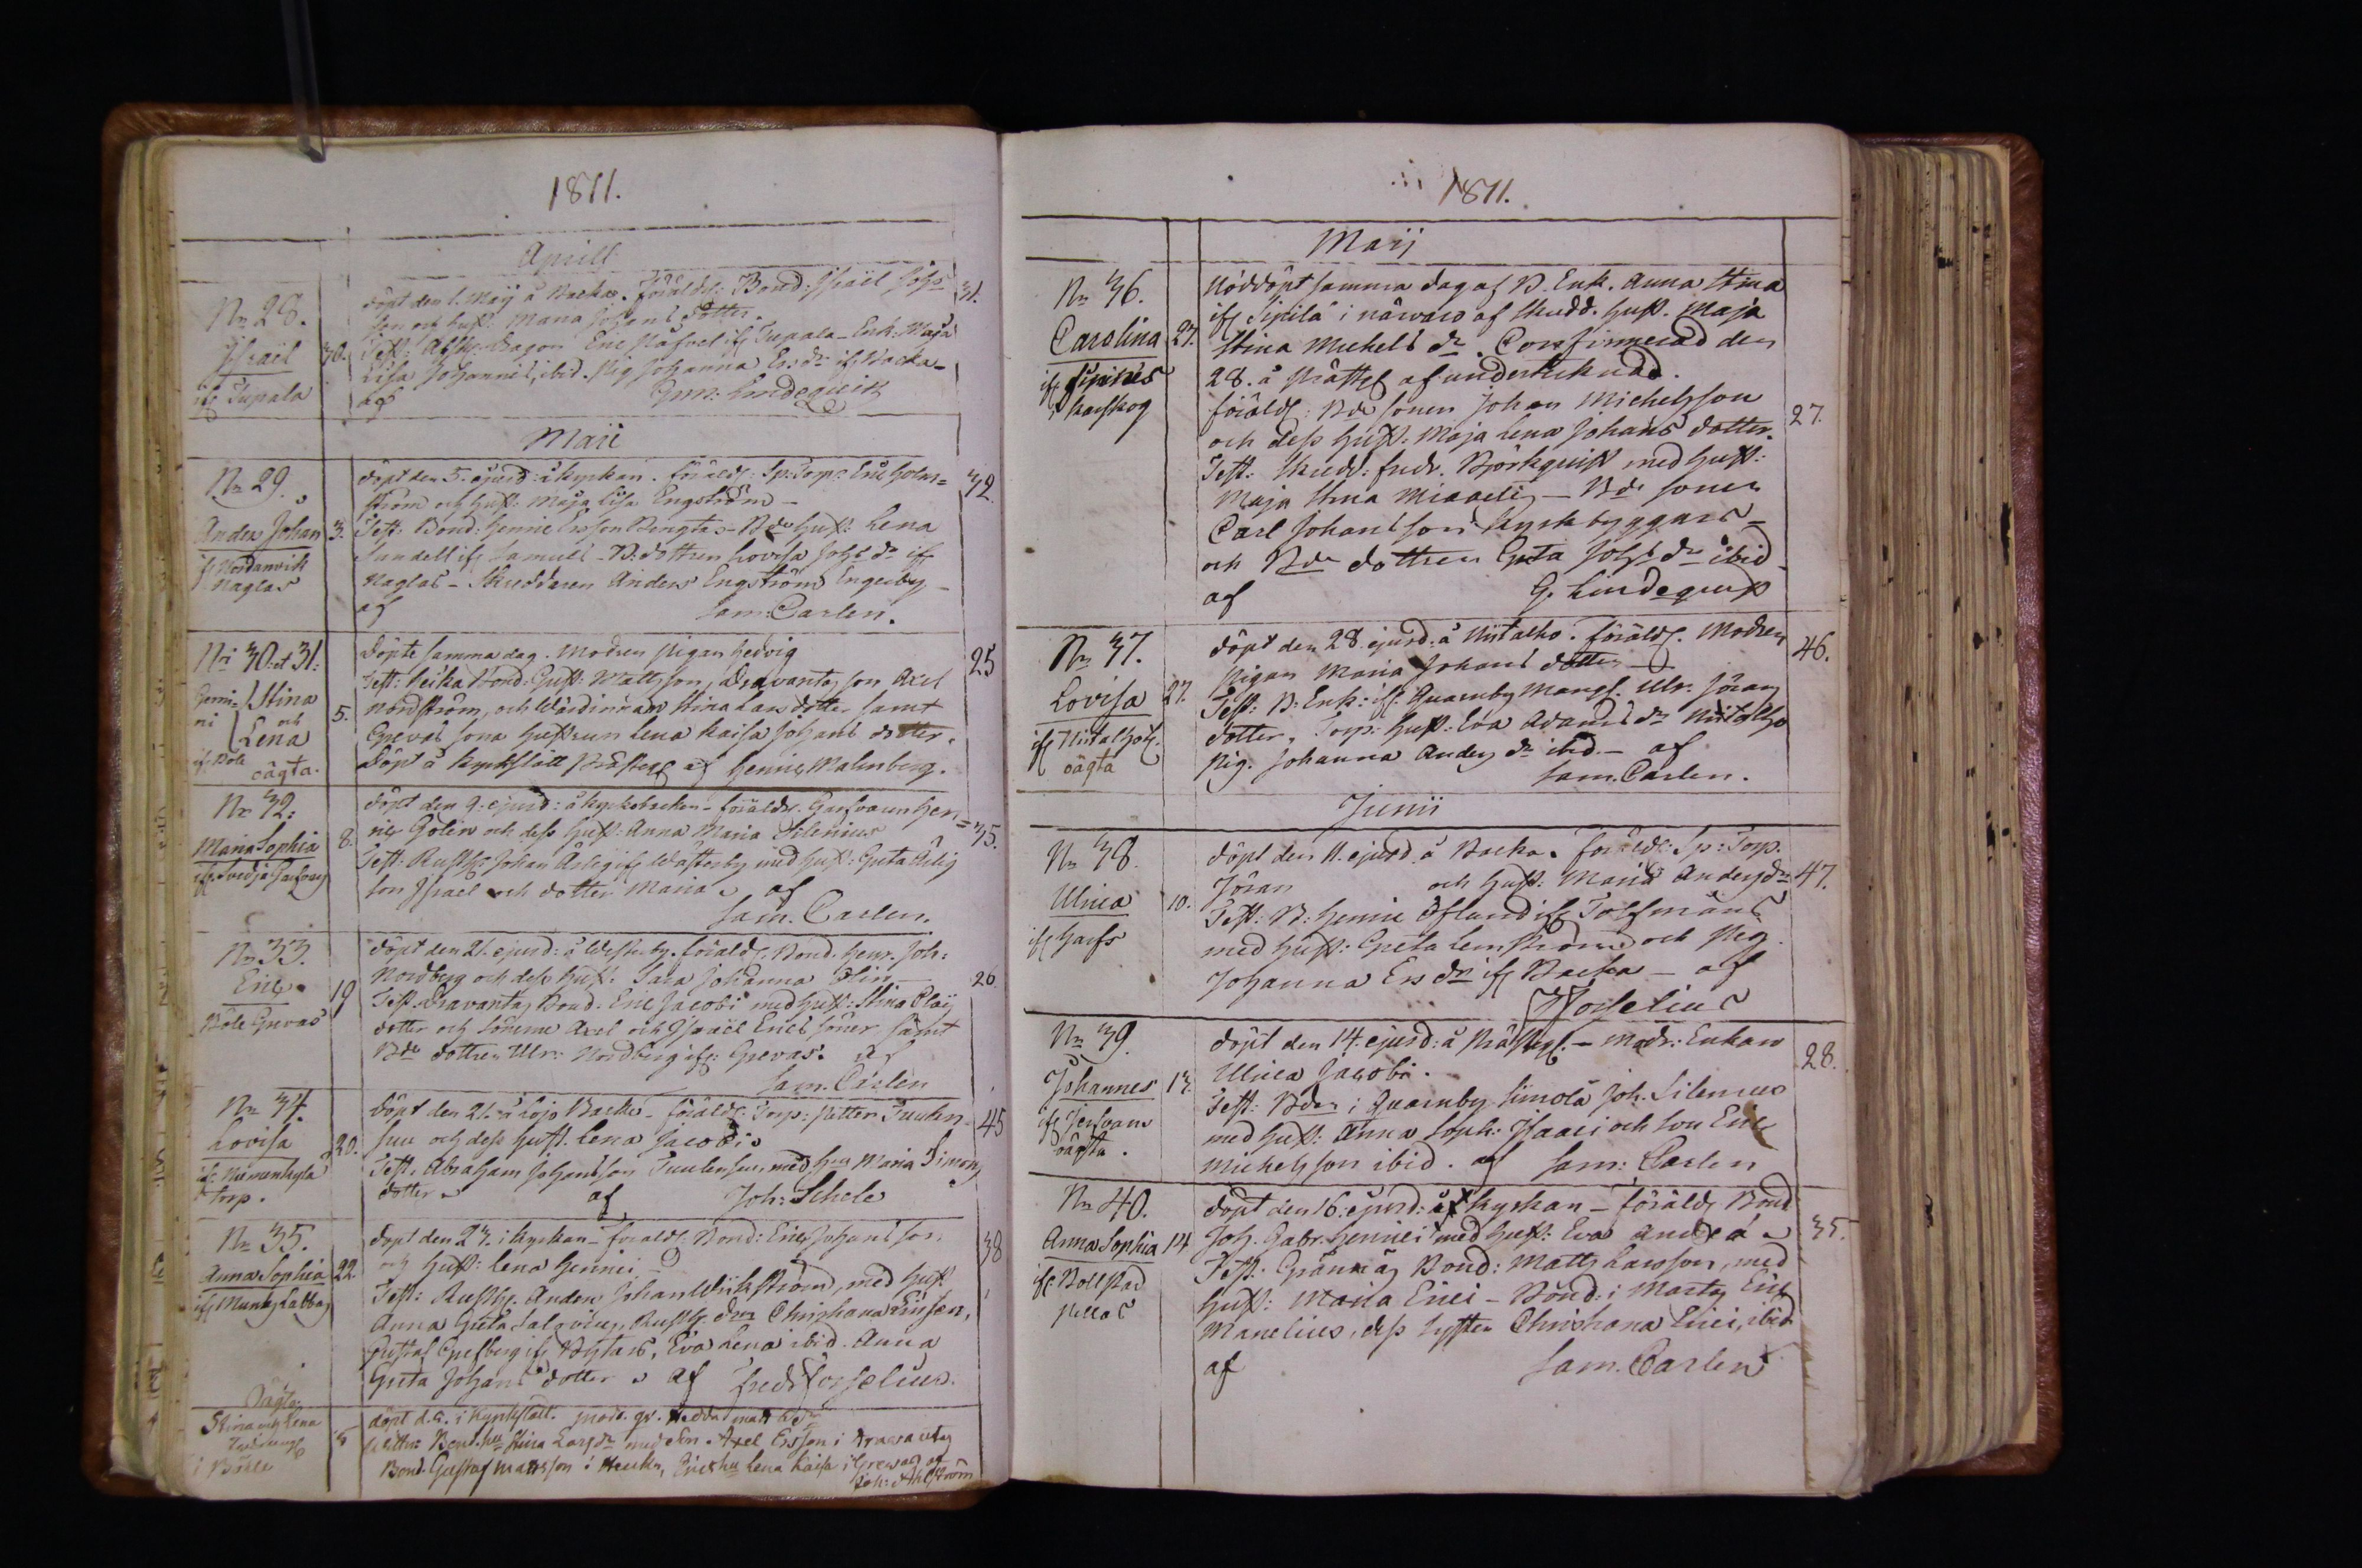 1811.
Aprill
Nr 28.
Israël
ifr Tupala
30.
döpt den 1. Maij å Backa. föräldr: Bond: Israël Johs
son och hust: Maria Johans dotter.
Test: Afsk. dragon Eric Näfvel ifr Tupala - Enk. Maja
Lisa Johannis, ibid. pig Johanna Er: dr ifr Backa -
af
Gem: Lindequist
31.
Maii
Nr 29.
Anders Johan
if Nordanvik
Naglas
3.
döpt den 5. ejusd: å kyrkan. föräldr: Sp: Torp: Eric Holm=
ström och hust: Maja Lisa Engström -
Test: Bond: Henric Ersson Bengtas - Bde hust: Lena
Sundell ifr Samuels - B: dottren Lovisa Johs dr ifr
Naglas - Skräddaren Anders Engström Engesby -
af
Sam: Carlen.
32.
Nr 30. et 31:
Gemi= Stina
ni och
Lena
ifr Böle
oägta.
5.
döpte samma dag. Modren pigan Hedvig
Test: Bond: Gust: Mattsson, Dravantas son Axel
Nordström, och Wärdinnan Stina Lars dotter samt
Grevas sona hustrun Lena Kaisa Johans dotter.
Döpt å Kyrkslätt Prästeg af Henric Malmberg.
25
Nr 32:
Maria Sophia
ifr Svedja
8.
döpt den 9. ejusd: å kyrkobacken - föräldr. Garfvaren Hen=
ric Golin och dess hust: Anna Maria Silenius
Test: Rusth: Johan ifr Wästerby med hust: Greta
son Israel och dotter Maria af
Sam. Carlen.
35.
Nr 33.
Eric
Böle Grevas
19
döpt den 21. ejusd: å Westerby. föräldr. Bond. Henr. Joh:
Nordberg och dess hust: Sara Johanna Olin
Test. Dravantas Bond: Eric Jacobi med hust: Stina Olai
dotter och sönerne Axel och Israël Erics söner samt
Bde dottren Ulr: Nordberg ifr: Grevas. af
Sam. Carlen
26.
Nr 34.
Lovisa
torp.
20.
döpt den 21. å Lojo Backe - föräldr. Torp: Petter Tuulen
suu och dess hust. Lena Jacobi
Test. Abraham Johansson Tuulensuu med hu Maria Simons
dotter
af
Joh: Schele
45
Nr 35.
Anna Sophia
ifr Munks Labbas
22
döpt den 23. i kyrkan - föräldr: Bond: Eric Johans son,
och hust: Lena Henrici -
Test: Rusth: Anders Johan Wikström, med hust
Anna Greta Salovius, Rusth dr Christiana Linsen,
Gustaf Grefberg ifr Bytars, Eva Lena ibid. Anna
Greta Johans dotter af Fredr Forselius.
38
Oägta.
Stina och Lena
i Böhle
5
döpt d. 5. i Kyrkslätt. Modr. qv. Hedda Matts dr
Wittn: Bond. hu Stina Larsdr med dn. Axel Ersson i Dravantas
Bond. Gustaf Mattsson i Heicka, Erics hu Lena Kaisa i Grevas af
Joh: Ahlström
1811.
Maij
Nr 36.
Carolina
ifr Sipiläs
karskog
27.
Nöddöpt samma dag af B. Enk. Anna Stina
ifr Sipilä i närwaro af Skrädd. hust. Maja
Stina Michels dr. Confirmerad den
28. å Prästg af undertecknad.
föräldr: Bde sonen Johan Michelsson
och dess hust: Maja Lena Johans dotter.
Test: Skrädd: Fredr. Björkquist med hust:
Maja Stina Michelis - Bde sonen
Carl Johansson Kyrkbyggars -
och Bde dottren Greta Johs dr ibid
af
G. Lindequist
27.
Nr 37.
Lovisa
ifr Nitalho
oägta
27.
döpt den 28 ejusd. å Nitalho. föräldr. Modren
pigan Maria Johans dotter -
Test: B: Enk: ifr: Quarnby Mangs. Ulr. Jörans
dotter, Torp: hust: Eva Adams dr Nitalho
pig. Johanna Anders dr ibid - af
Sam. Carlen.
46.
Junii
Nr 38.
Ulrica
ifr Garfs
10.
döpt den 11. ejusd å Backa. föräldr: Sp: Torp.
Jöran och hust: Maria Anders dr
Test: B: Henric Öflund ifr Tolfmans
med hust: Greta Lemström och pig.
Johanna Ers dr ifr Backa - af
Forselius
47.
Nr 39.
Johannes
oägta.
13.
döpt den 14. ejusd: å Prästg: - Modr: Enkan
Ulrica Jacobi.
Test: Bden i Quarnby Simola Joh. Silenius
med hust: Anna Soph: Isaaci och son Eric
Michelsson ibid. af Sam: Carlen
28.
Nr 40.
Anna Sophia
ifr Bollstad
Pellas
14
döpt den 16: ejusd: å kyrkan - föräldr Bond
Joh. Gabr. Henrici med hust: Eva Andeä
Test: Grännäs Bond: Matts Larsson, med
hust: Maria Erici - Bond: i Mårtas Eric
Manelius, dess syster Christiana Erici, ibid
af
Sam. Carlen
35.